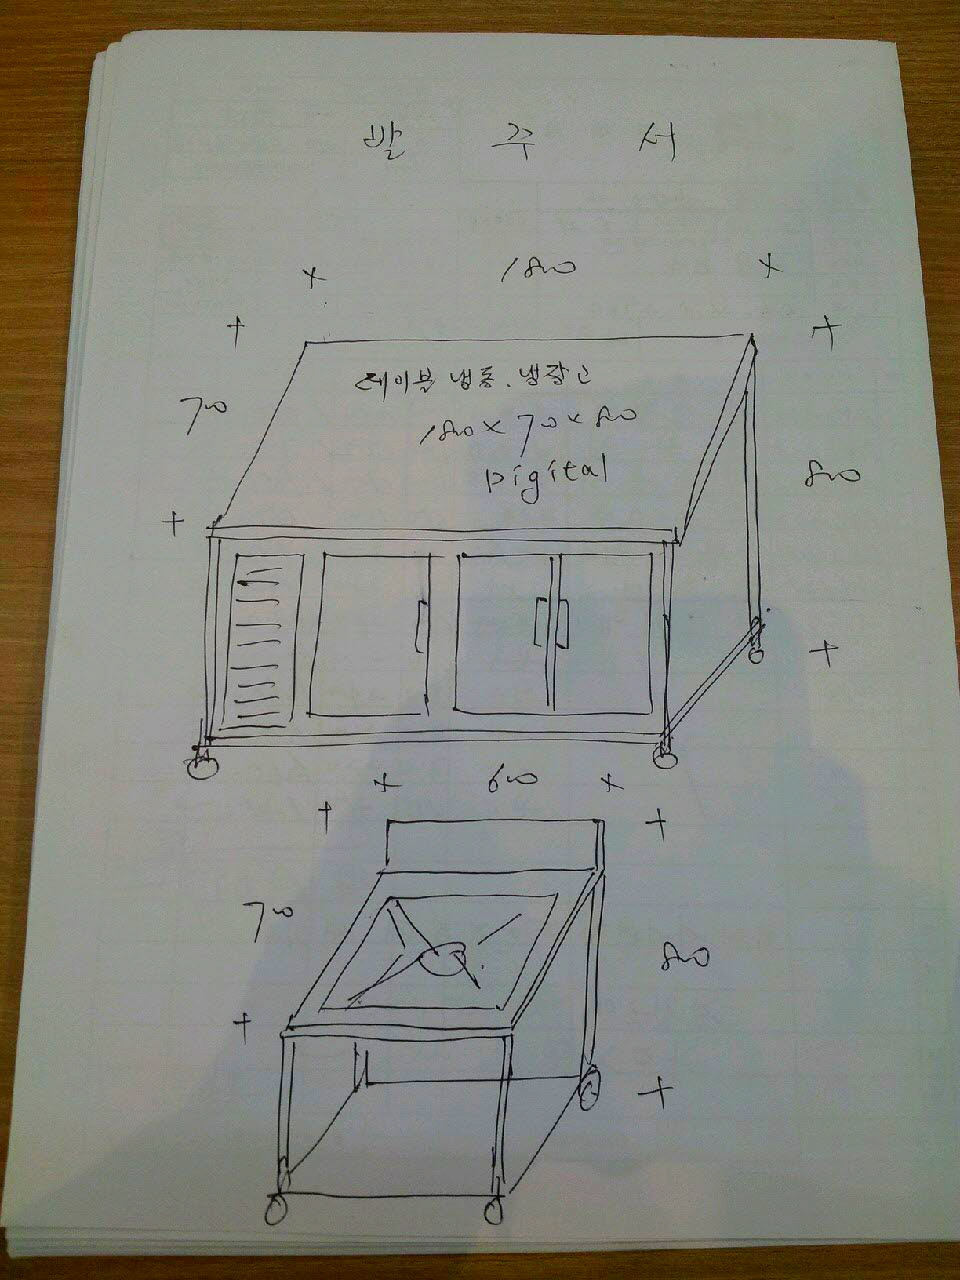 발 주 서
1800
700
테이블 냉동.냉장고
1800 x 700 x 800
Digital
800
600
700
800